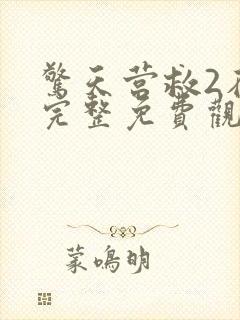 驚天营救2在
完整免費觀
蒙鳴明